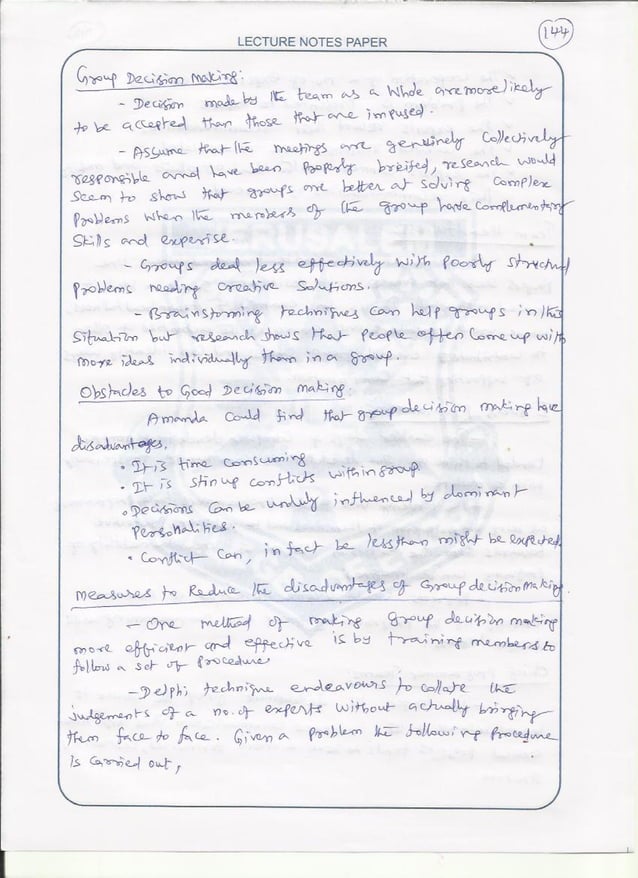 144
LECTURE NOTES PAPER
Group Decision Making:
- Decision made by the team as a whole are more likely
to be accepted than those that are imposed.
- Assume that the meetings are genuinely Collectively
responsible annd have been properly breifed, research would
Seem to show that groups are better at solving Complex
Problems when the members of the group have Complementary
Skills and experise.
- Groups deal less effectively with Poorly structured
Problems needing creative Solutions.
- Brainstorming techniques can help groups in this
Situation but research shows that People offen Come up with
more ideas individually than in a group.
Obstacles to Good Decision making:
Amanda Could find that group decision making have
disadvantages.
• It is time Consuming
• It is stirup conflicts within group
• Decisions Can be unduly influenced by dominant
Personalities.
• Conflict Can, in fact be less than might be expected.
Measures to Reduce the disadvantages of Group decision Making
- One method of making group decision making
more efficient and effective is by training members to
follow a set of Procedure
- Delphi technique endeavours to collate the
judgements of a no. of experts without actually bringing
them face to face. Given a problem the following procedure
is Carried out,